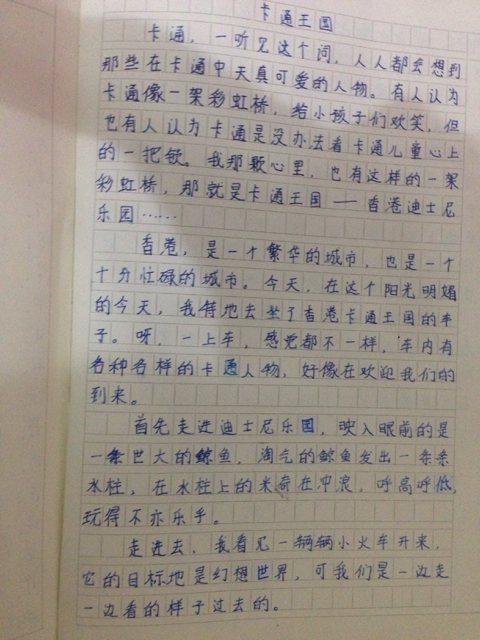 卡通王国
卡通，一听见这个词，人人都会想到
那些在卡通中天真可爱的人物。有人认为
卡通像一架彩虹桥，给小孩子们欢笑，但
也有人认为卡通是没办去看卡通儿童心上
的一把锁。我那颗心里，也有这样的一架
彩虹桥，那就是卡通王国——香港迪士尼
乐园……
香港，是一个繁华的城市，也是一个
十分忙碌的城市。今天，在这个阳光明媚
的今天，我特地去坐了香港卡通王国的车
子。呀，一上车，感觉都不一样，车内有
各种各样的卡通人物，好像在欢迎我们的
到来。
首先走进迪士尼乐园，映入眼前的是
一条巨大的鲸鱼，淘气的鲸鱼发出一条条
水柱，在水柱上的米奇在冲浪，呼高呼低，
玩得不亦乐乎。
走进去，我看见一辆辆小火车开来，
它的目标地是幻想世界，可我们是一边走
一边看的样子过去的。